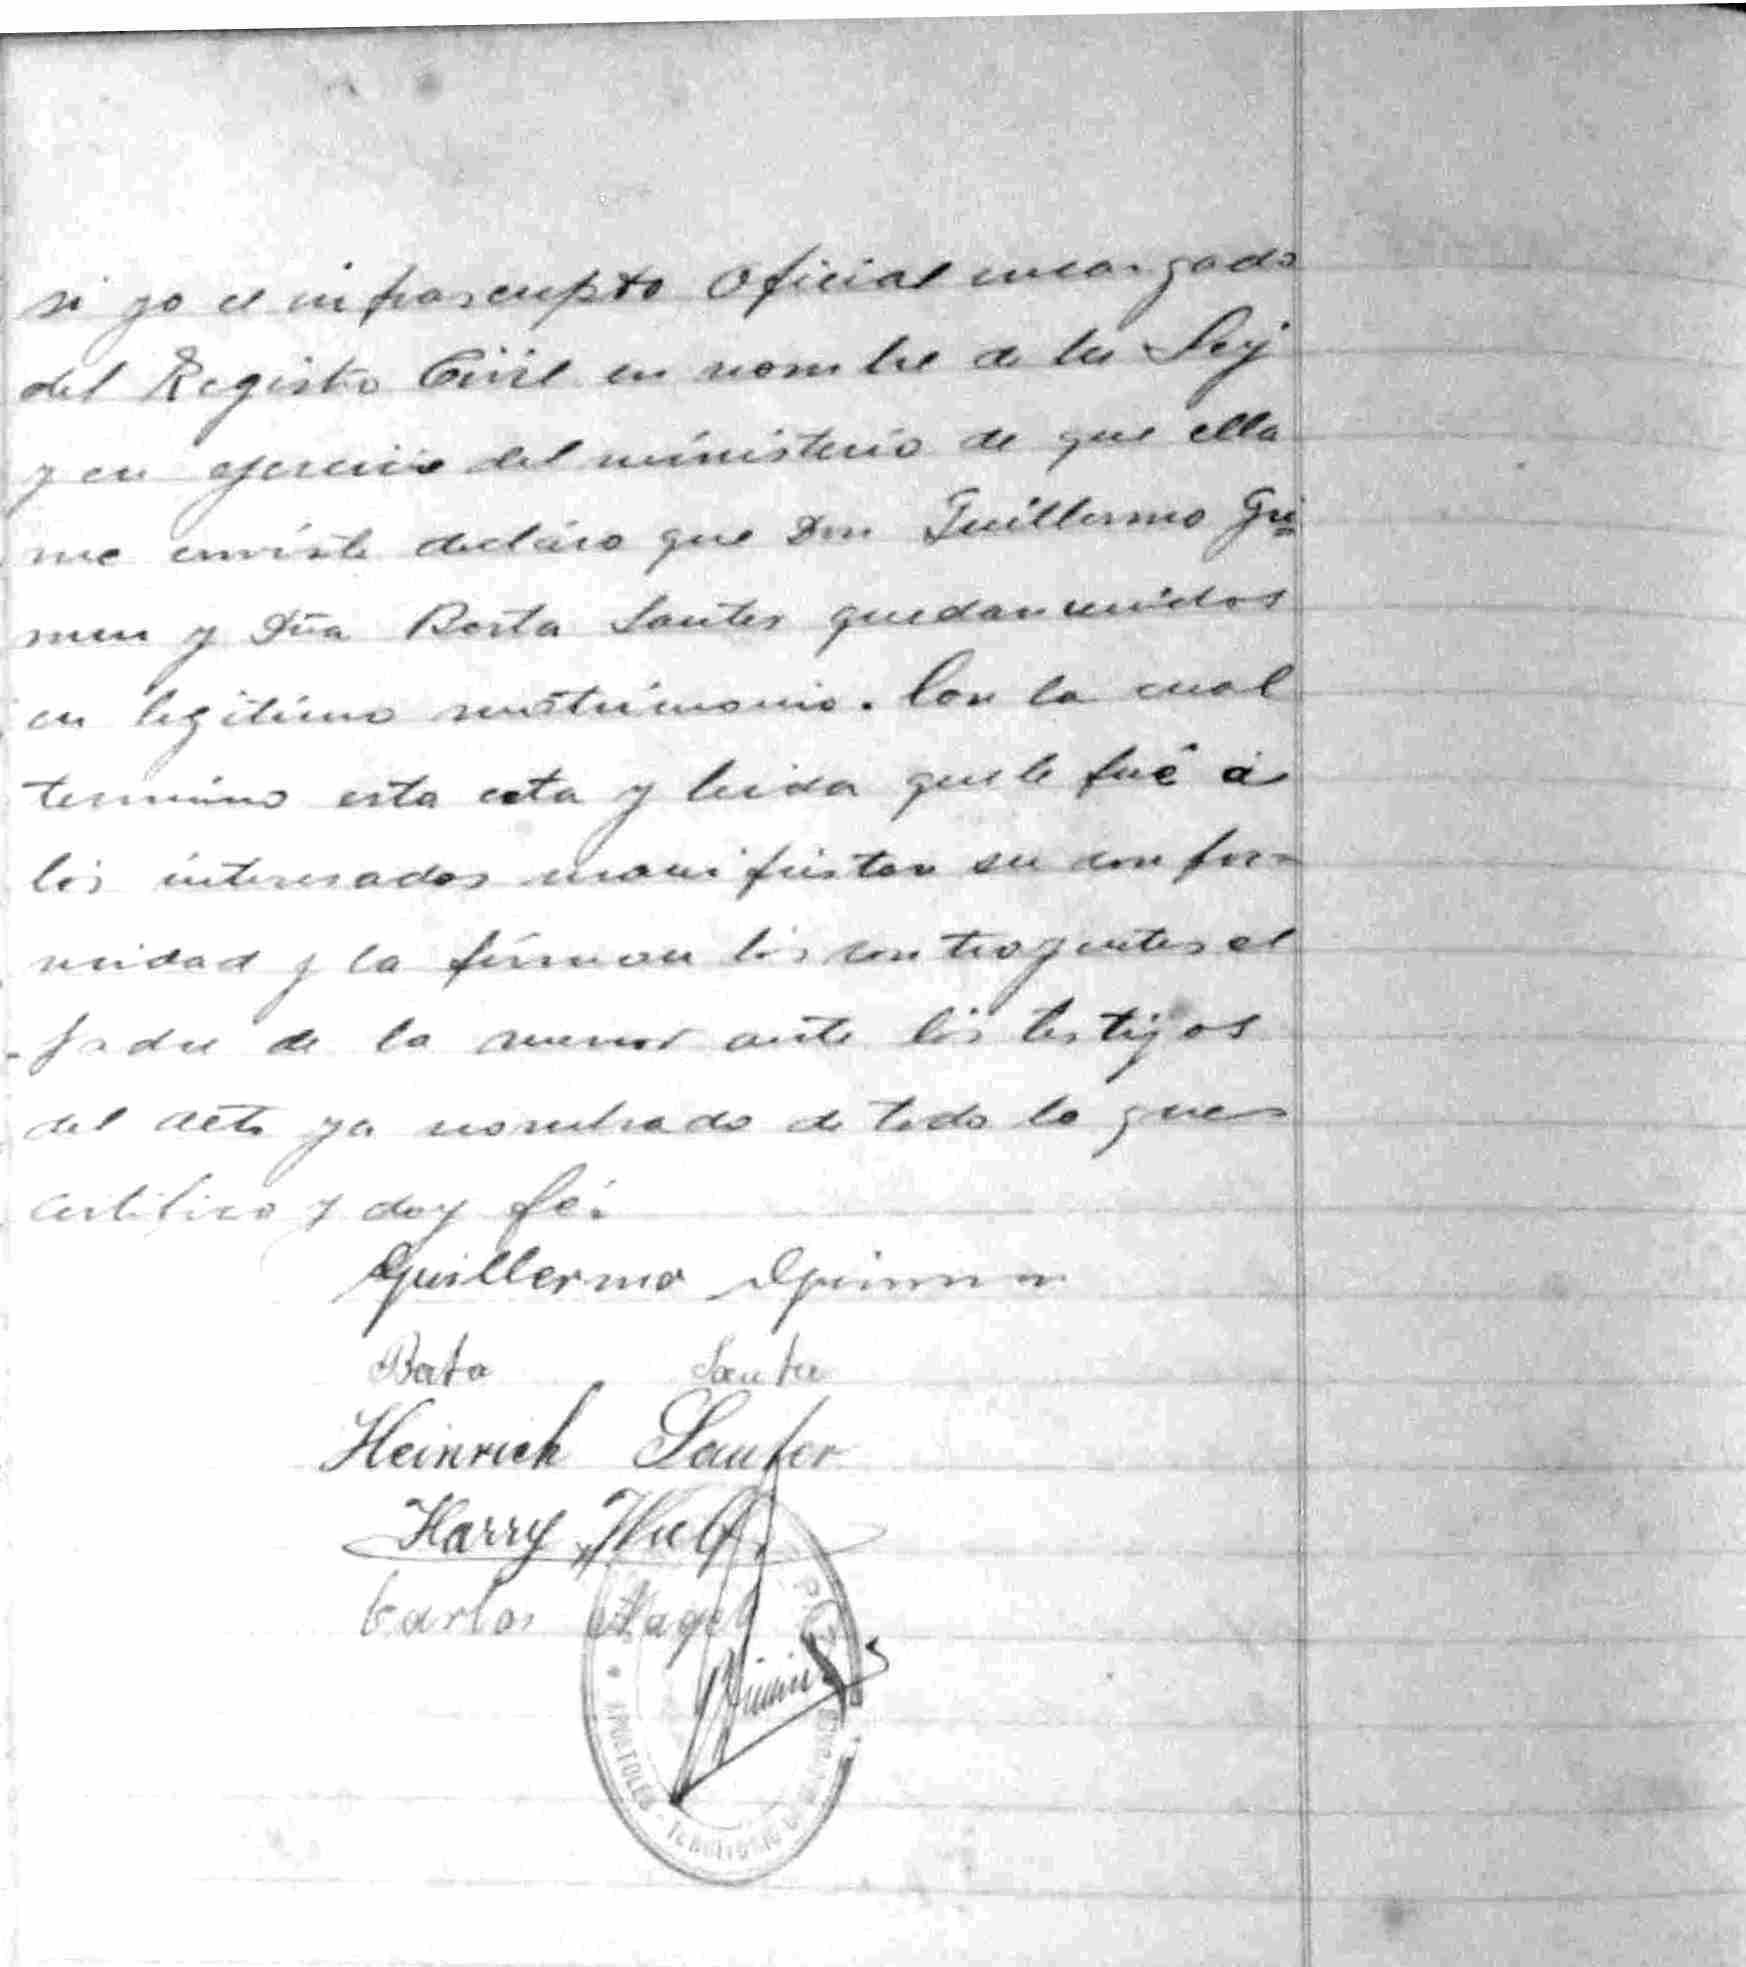 si yo el infrascripto Oficial encargado
del Registro Civil en nombre de la Ley
y en ejercicio del ministerio de que ella
me enviste decláro que Don Guillermo Gri=
mm y Dña Berta Sauter quedan unidos
en legitimo matrimonio. Con la cual
termino esta acta y leida que le fué á
los interesados manifiestan su confor=
midad y la firman los contrayentes el
padre de la menor ante los testigos
del acto ya nombrado de todo lo que
certifico y doy fé.
Guillermo Grimm
Berta Sauter
Heinrich Sauter
Harry
Carlos Nagel
APOSTOLES - TERRITORIO DE MISIONES